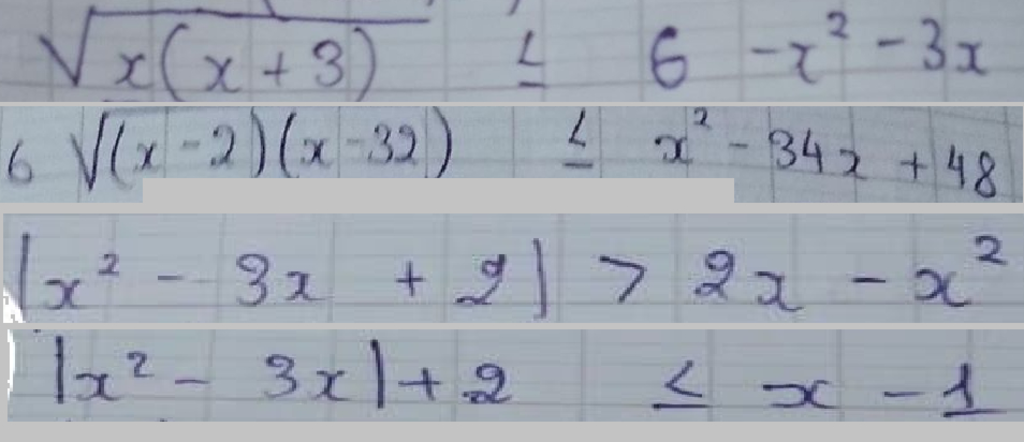 √x(x+3) ≤ 6 -x² -3x
6 √(x-2)(x-32) ≤ x² - 34x + 48
|x² - 3x + 2| > 2x - x²
|x² - 3x| + 2 ≤ x - 1